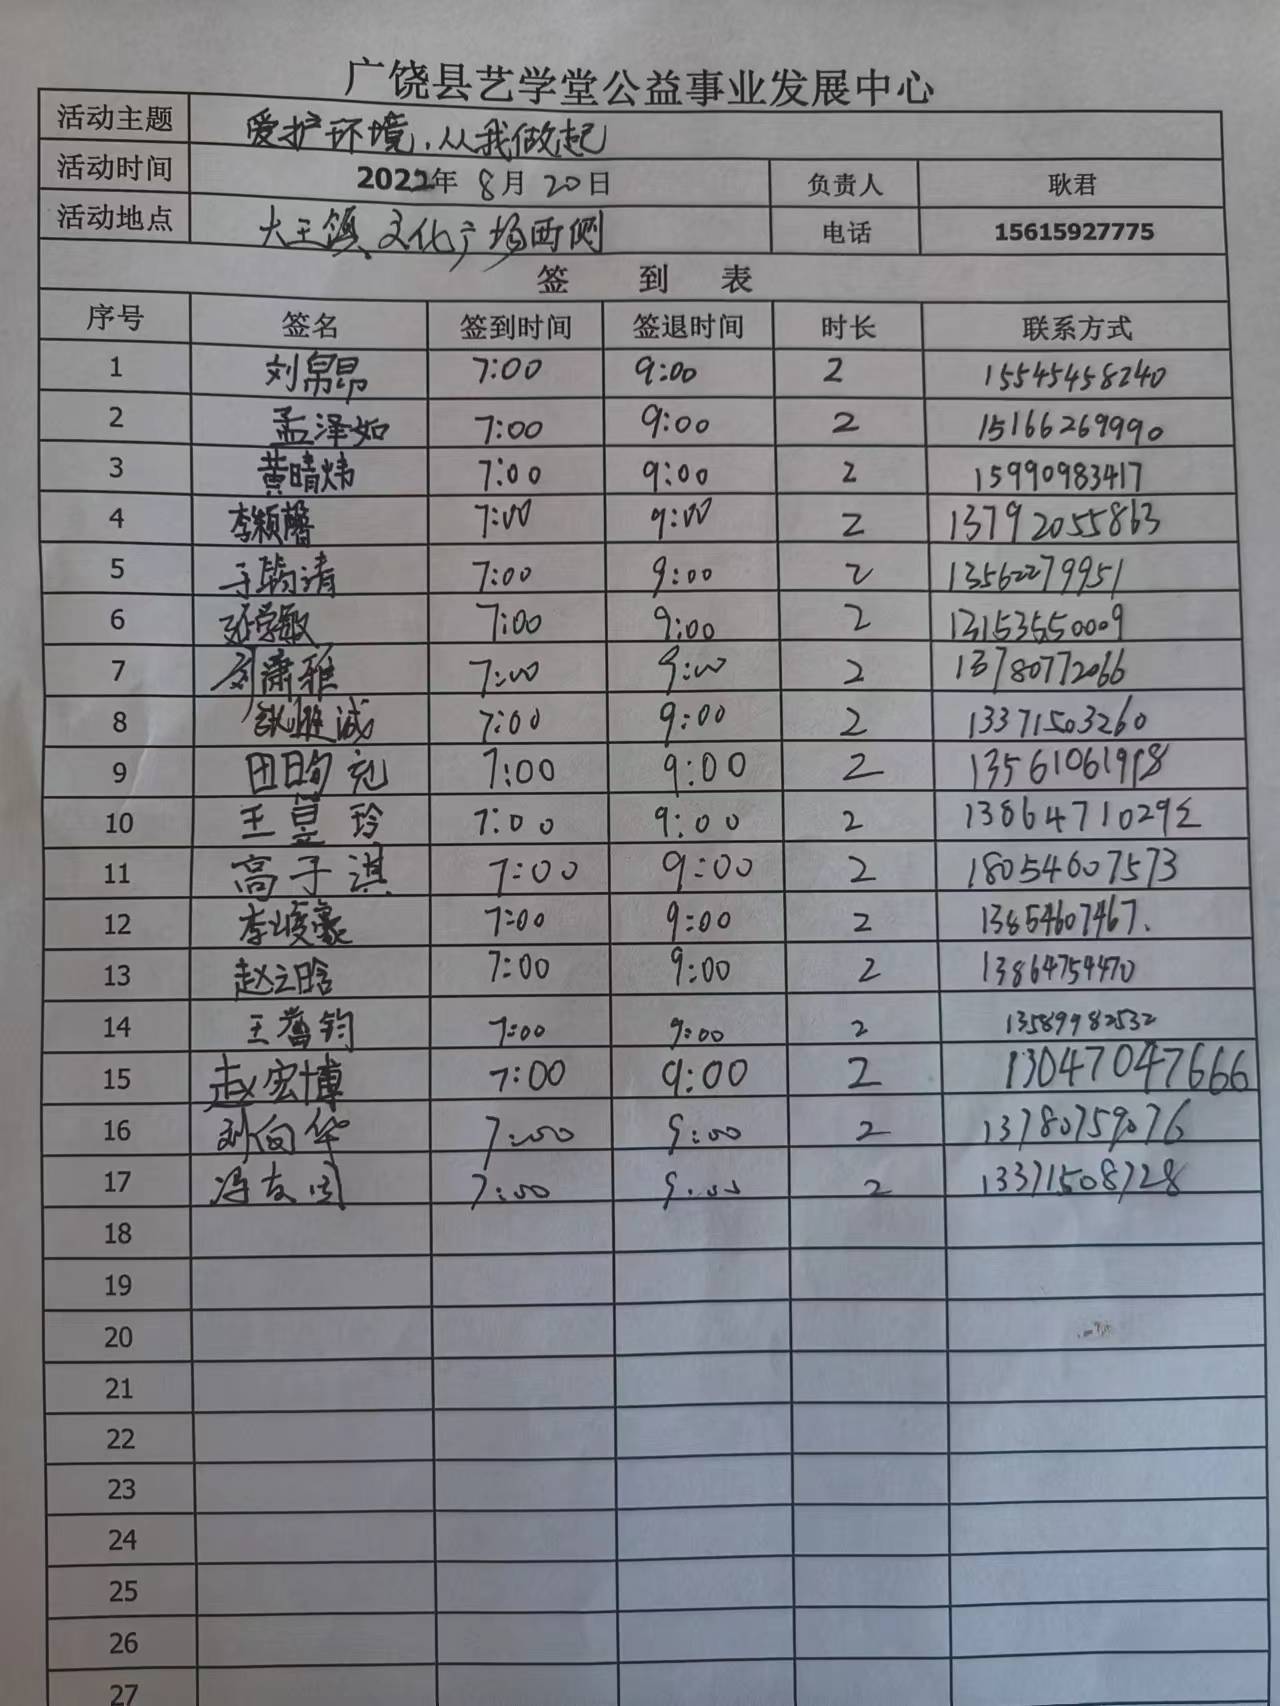 广饶县艺学堂公益事业发展中心
活动主题 爱护环境.从我做起
活动时间 2022年 8月 20日 负责人 耿君
活动地点 大王镇文化广场西侧 电话 15615927775
签 到 表
序号 签名 签到时间 签退时间 时长 联系方式
1 刘帛昂 7:00 9:00 2 15545458240
2 孟泽如 7:00 9:00 2 15166269990
3 黄晴炜 7:00 9:00 2 15990983417
4 李颖馨 7:00 9:00 2 13792055863
5 于钧清 7:00 9:00 2 13562279951
6 张学敏 7:00 9:00 2 13153550009
7 刘潇雅 7:00 9:00 2 13780772066
8 7:00 9:00 2 13371503260
9 田 7:00 9:00 2
10 王昱玲 7:00 9:00 2
11 高子淇 7:00 9:00 2 18054607573
12 李峻豪 7:00 9:00 2 13854607467.
13 赵云晗 7:00 9:00 2 13864754470
14 王 钧 7:00 9:00 2 13589982532
15 赵宏博 7:00 9:00 2 13047047666
16 刘向华 7:00 9:00 2 13780759076
17 冯友国 7:00 9:00 2 13371508728
18
19
20
21
22
23
24
25
26
27